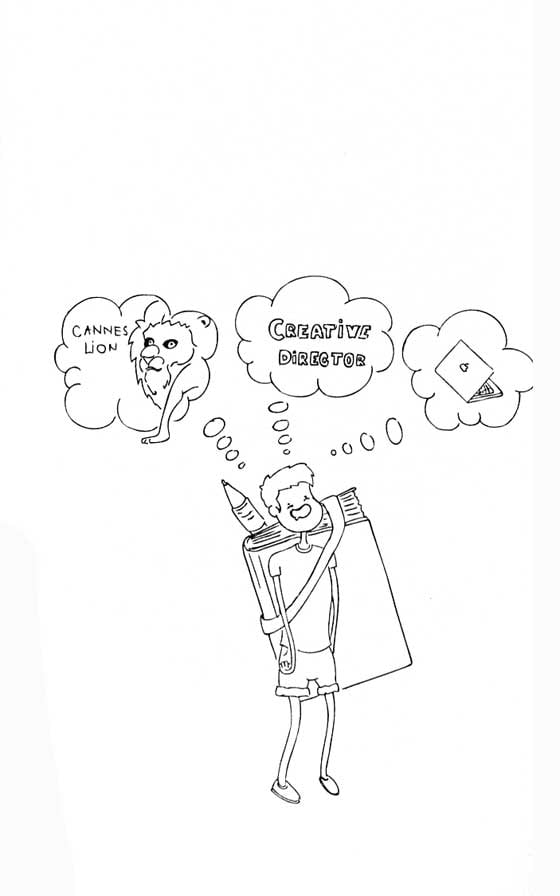 CANNES
LION
CREATIVE
DIRECTOR